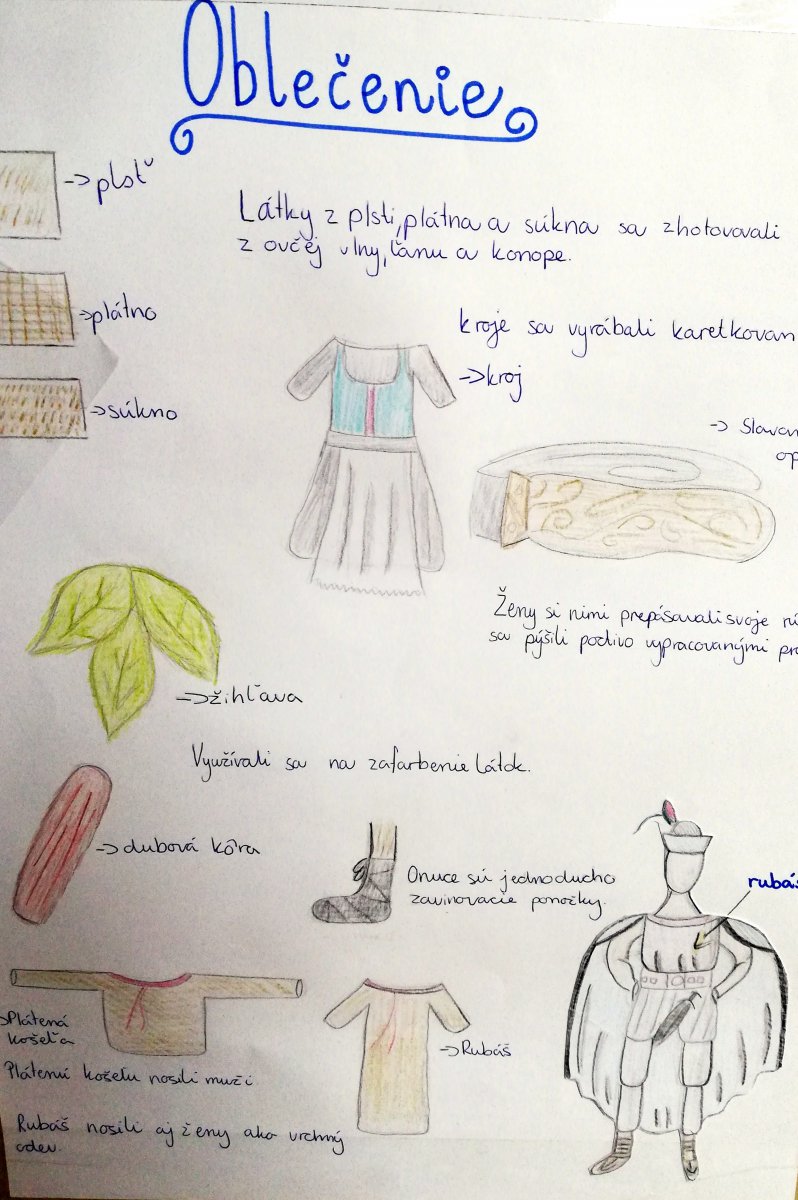 Oblečenie
->plsť
Látky z plsti, plátna a súkna sa zhotovovali
z ovčej vlny, ľanu a konope.
->plátno
kroje sa vyrábali karetkovan
->kroj
->súkno
-> Slovan
op
Ženy si nimi prepásavali svoje rú
sa pýšili podivo vypracovanými pra
->žihľava
Využívali sa na zafarbenie látok.
->dubová kôra
Onuce sú jednoducho
zavinovacie ponožky.
rubáš
->Plátená
košeľa
->Rubáš
Plátenú košeľu nosili muži
Rubáš nosili aj ženy ako vrchný
odev.